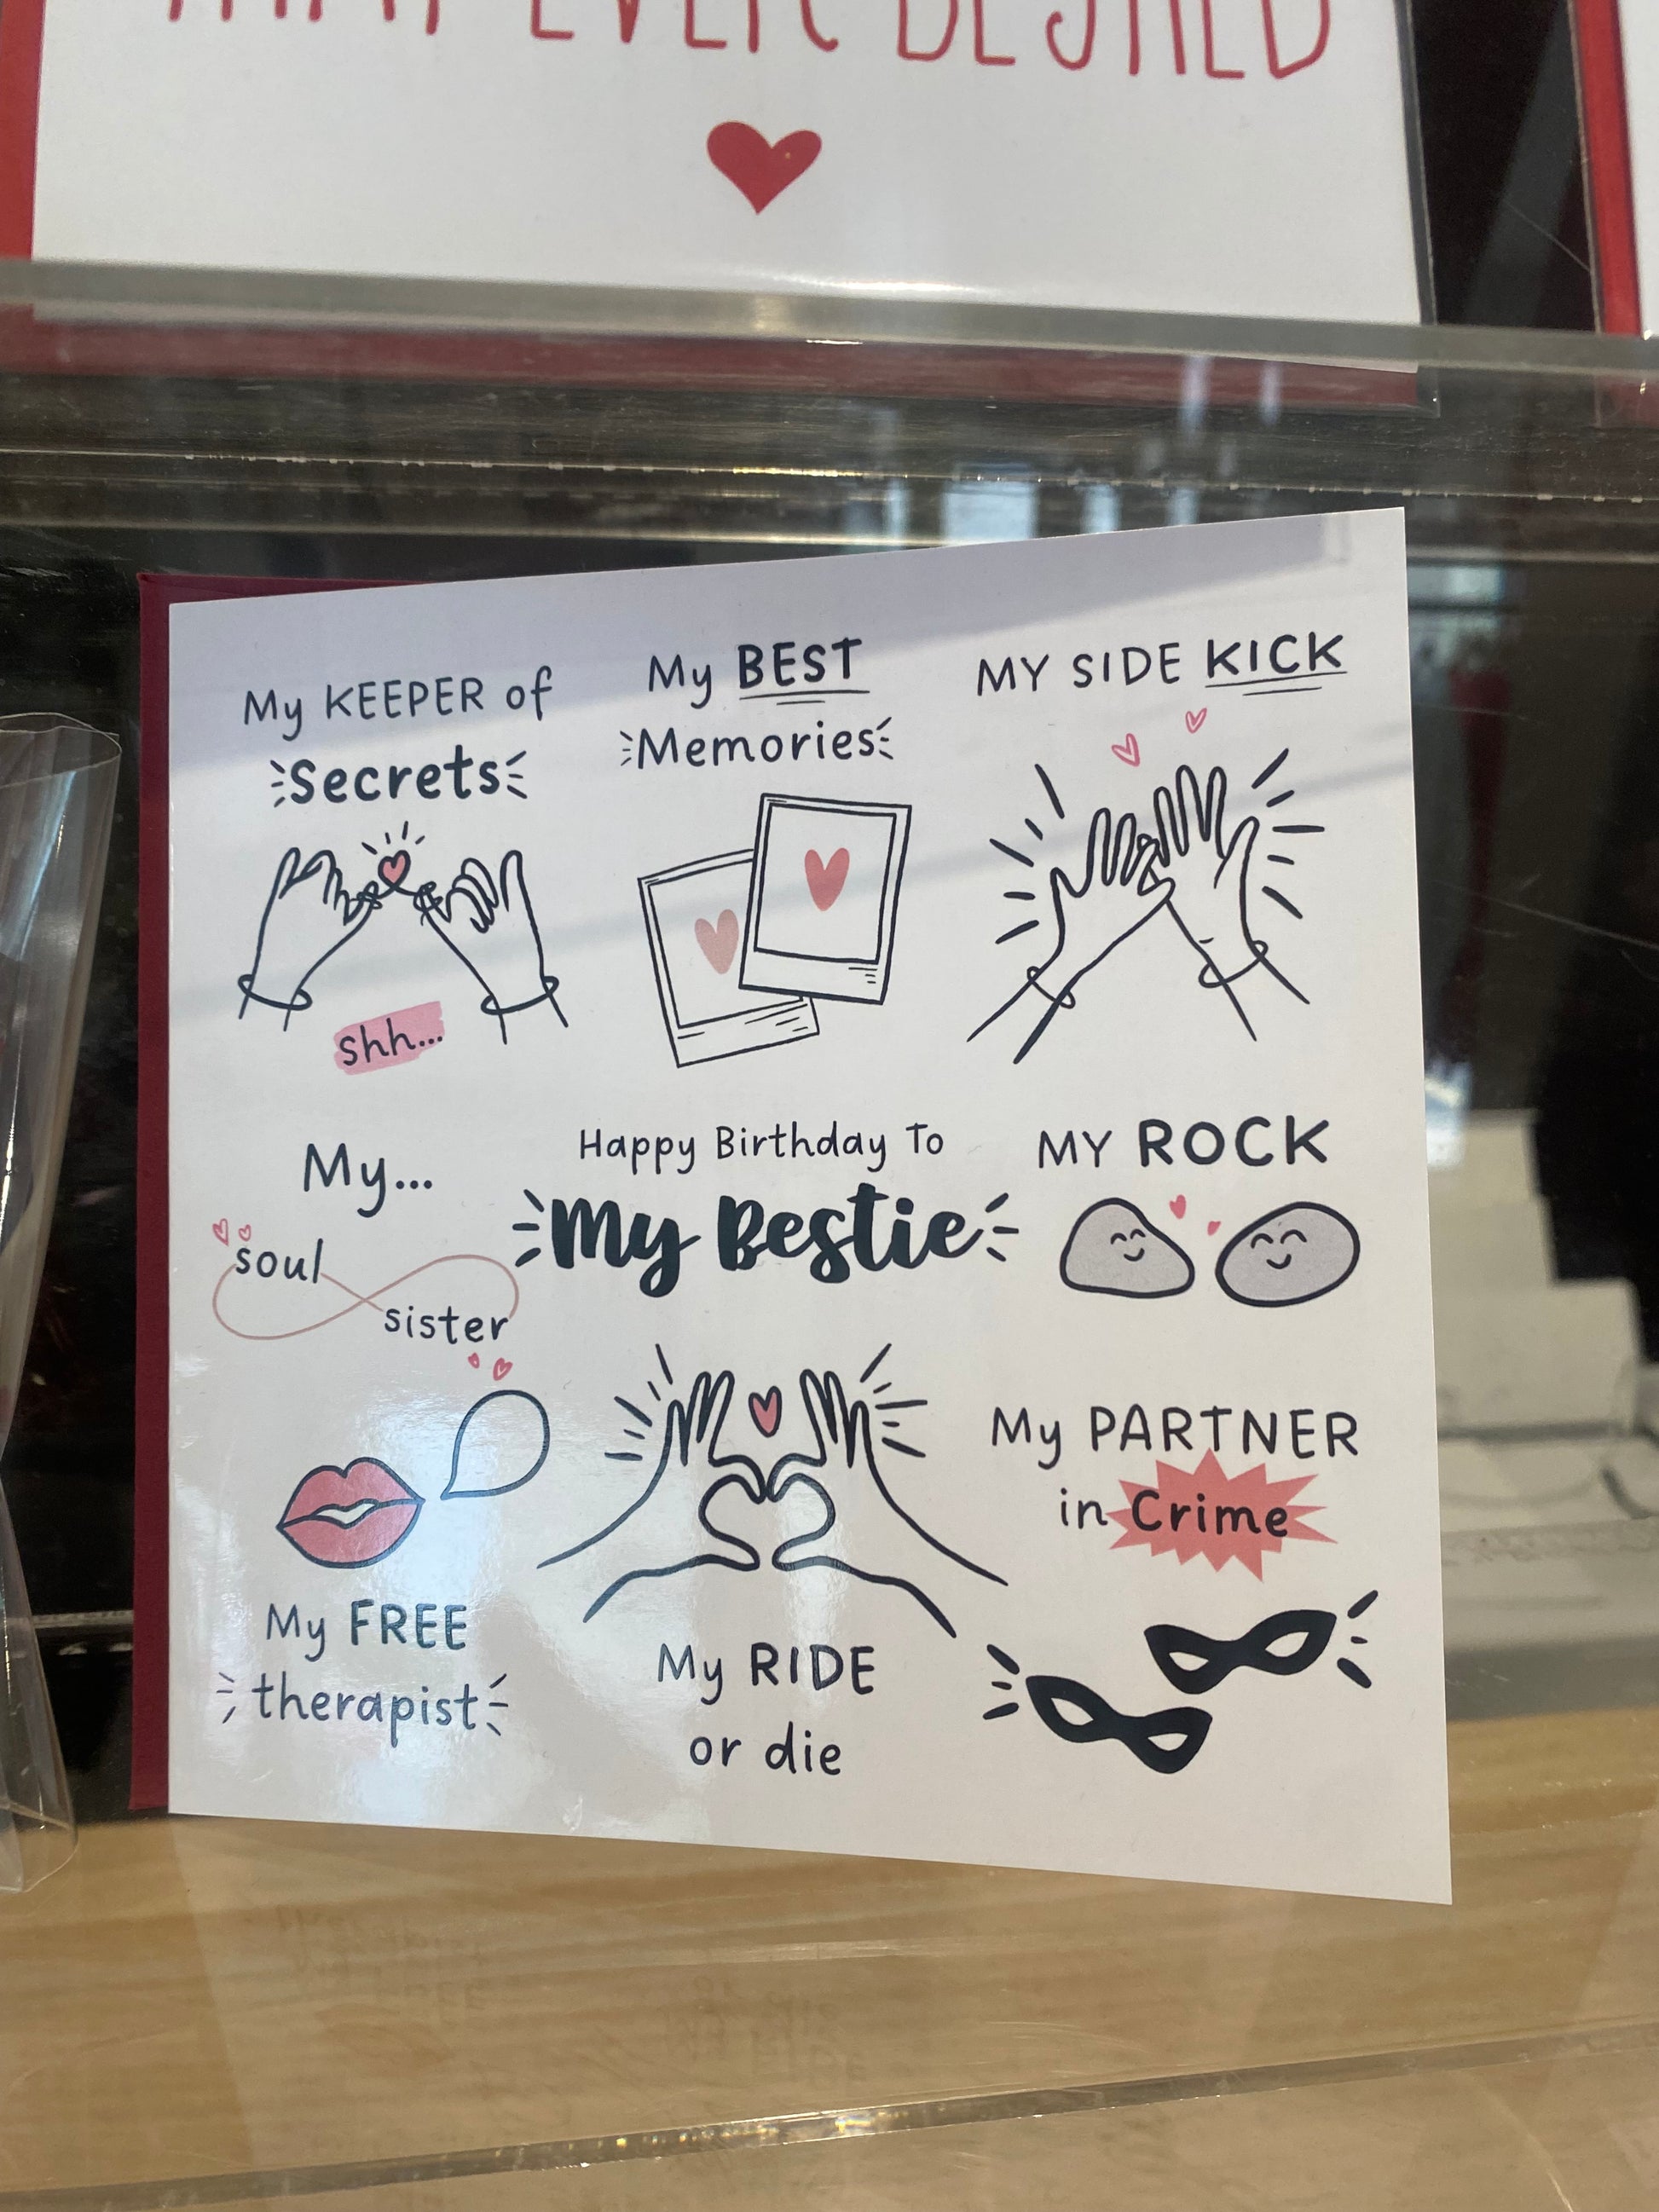 THAT EVER BESTIED
My KEEPER of
Secrets
shh...
My BEST
Memories
MY SIDE KICK
My...
soul
sister
Happy Birthday To
My Bestie
MY ROCK
My FREE
therapist
My RIDE
or die
My PARTNER
in Crime